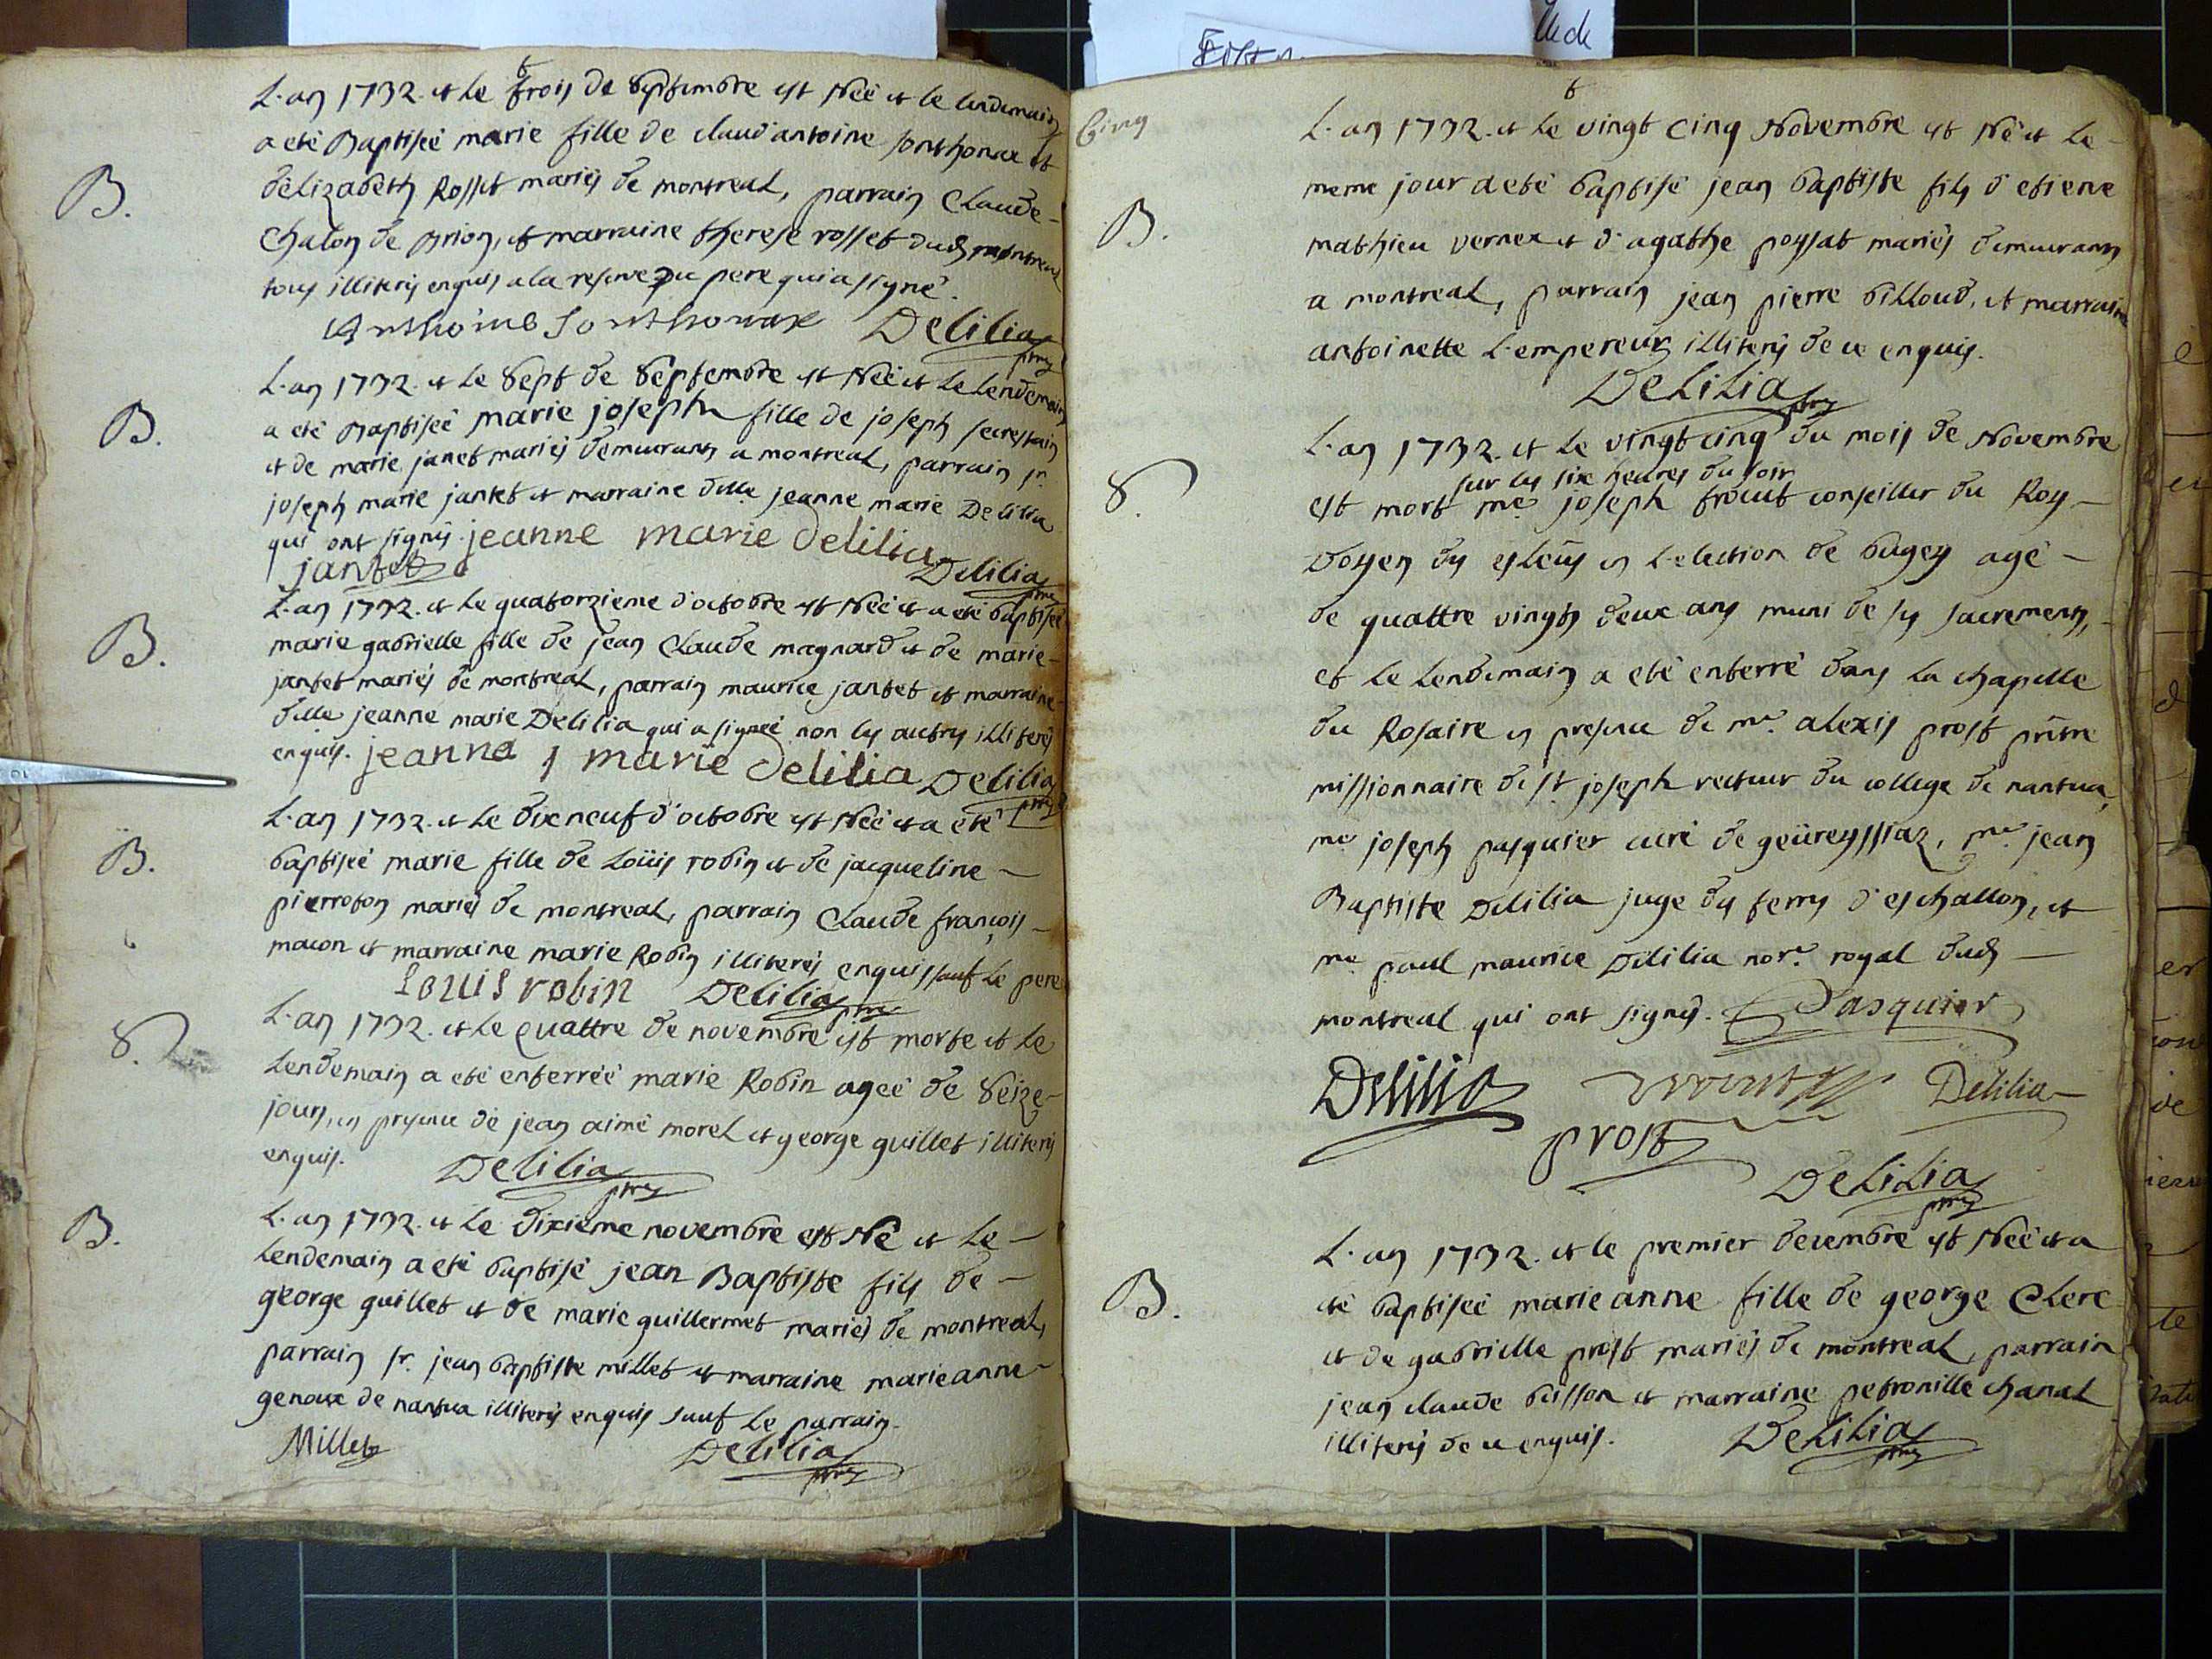 L'an 1732. et le trois de septembre est Née et le lendemain
a eté Baptisée marie fille de claud'antoine sonthonax et
B.
d'elizabeth Rosset mariés de montreal, parrain Claude
Chalon de Brion, et marraine therese rosset dud montreal
tous illiterés enquis a la reserve du pere qui a signé.
Anthoine Sonthonax Delilia ptre
L'an 1732. et le sept de septembre est Née et le lendemain
B.
a eté Baptisée marie joseph fille de joseph secrestain
et de marie jantet mariés demeurants a montreal, parrain sr.
joseph marie jantet et marraine dlle jeanne marie Delilia
qui ont signés. jeanne marie delilia
jantet Delilia ptre
L'an 1732. et le quatorzieme d'octobre est Née et a eté baptisée
B.
marie gabrielle fille de jean Claude magnard et de marie
jantet mariés de montreal, parrain maurice jantet et marraine
dlle jeanne marie Delilia qui a signéé non les autres illiterés
enquis. jeanne marie delilia Delilia ptre
L'an 1732. et le dix neuf d'octobre est Née et a eté
B.
baptisée marie fille de Loüis robin et de jacqueline
pierroton mariés de montreal, parrain Claude françois
macon et marraine marie Robin illiterés enquis sauf le pere
Louis robin Delilia ptre
L'an 1732. et le quattre de novembre est morte et le
S.
Lendemain a eté enterréé marie Robin ageé de seize
jours, en presence de jean aimé morel et george guillet illiterés
enquis. Delilia ptre
L'an 1732. et le dixieme novembre est Né et le
B.
Lendemain a eté baptisé jean Baptiste fils de
george guillet et de marie guillermet mariés de montreal,
parrain sr. jean baptiste millet et marraine marieanne
genoux de nantua illiterés enquis sauf le parrain.
Millet Delilia ptre
Cinq
L'an 1732. et le vingt cinq Novembre est Né et le
meme jour a eté baptisé jean baptiste fils d'etiene
B.
mathieu vernex et d'agathe poysat mariés demeurants
a montreal, parrain jean pierre billoud, et marraine
antoinette L'empereur illiterés de ce enquis.
DeLiLia ptre
L'an 1732. et le vingt cinq du mois de Novembre
sur les six heures du soir
S.
est mort me joseph frouet conseiller du Roy
doyen des esleüs en L'election de bugey agé
de quattre vingts deux ans muni de ses sacrements,
et le lendemain a eté enterré dans la chapelle
du Rosaire en presence de mre. alexis prost prêtre
missionnaire de st. joseph recteur du college de nantua,
mre joseph pasquier curé de geüreyssiaz, me. jean
Baptiste Delilia juge des terres d'eschallon, et
me paul maurice Delilia nore. royal dud
montreal qui ont signés. Pasquier
Delilia Delilia
prost
DeLiLia ptre
L'an 1732. et le premier decembre est Née et a
B.
eté baptisée marieanne fille de george Clerc
et de gabrielle prost mariés de montreal, parrain
jean claude buisson et marraine petronille chanal
illiterés de ce enquis. DeLiLia ptre